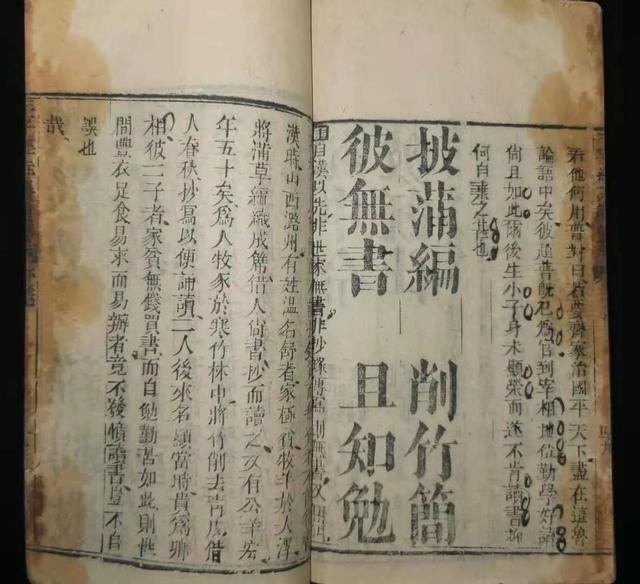 君他何用普對曰若要齊家治國平天下盡在這魯
論語中矣彼趙普既已為官到宰相地位勤學好讀
尚且如此爾後生小子身未顯榮而遂不肯讀書抑
何自棄之甚也
披蒲編 削竹簡
彼無書 且知勉
自漢以先非世家無書非抄錄傳寫則無書又
漢時山西潞州有姓溫名舒者家極貧牧羊於大澤
將蒲草編織成席借人尚書抄而讀之又有公羊宏
年五十矣為人牧豕於寒竹林中將竹削去青皮借
人春秋抄寫以便誦讀二人後來名顯當時貴為卿
相彼二子者家貧無錢買書而自勉勤苦如此則世
間豐衣足食易求而易辦者竟不發憤讀書豈不自
誤也
哉